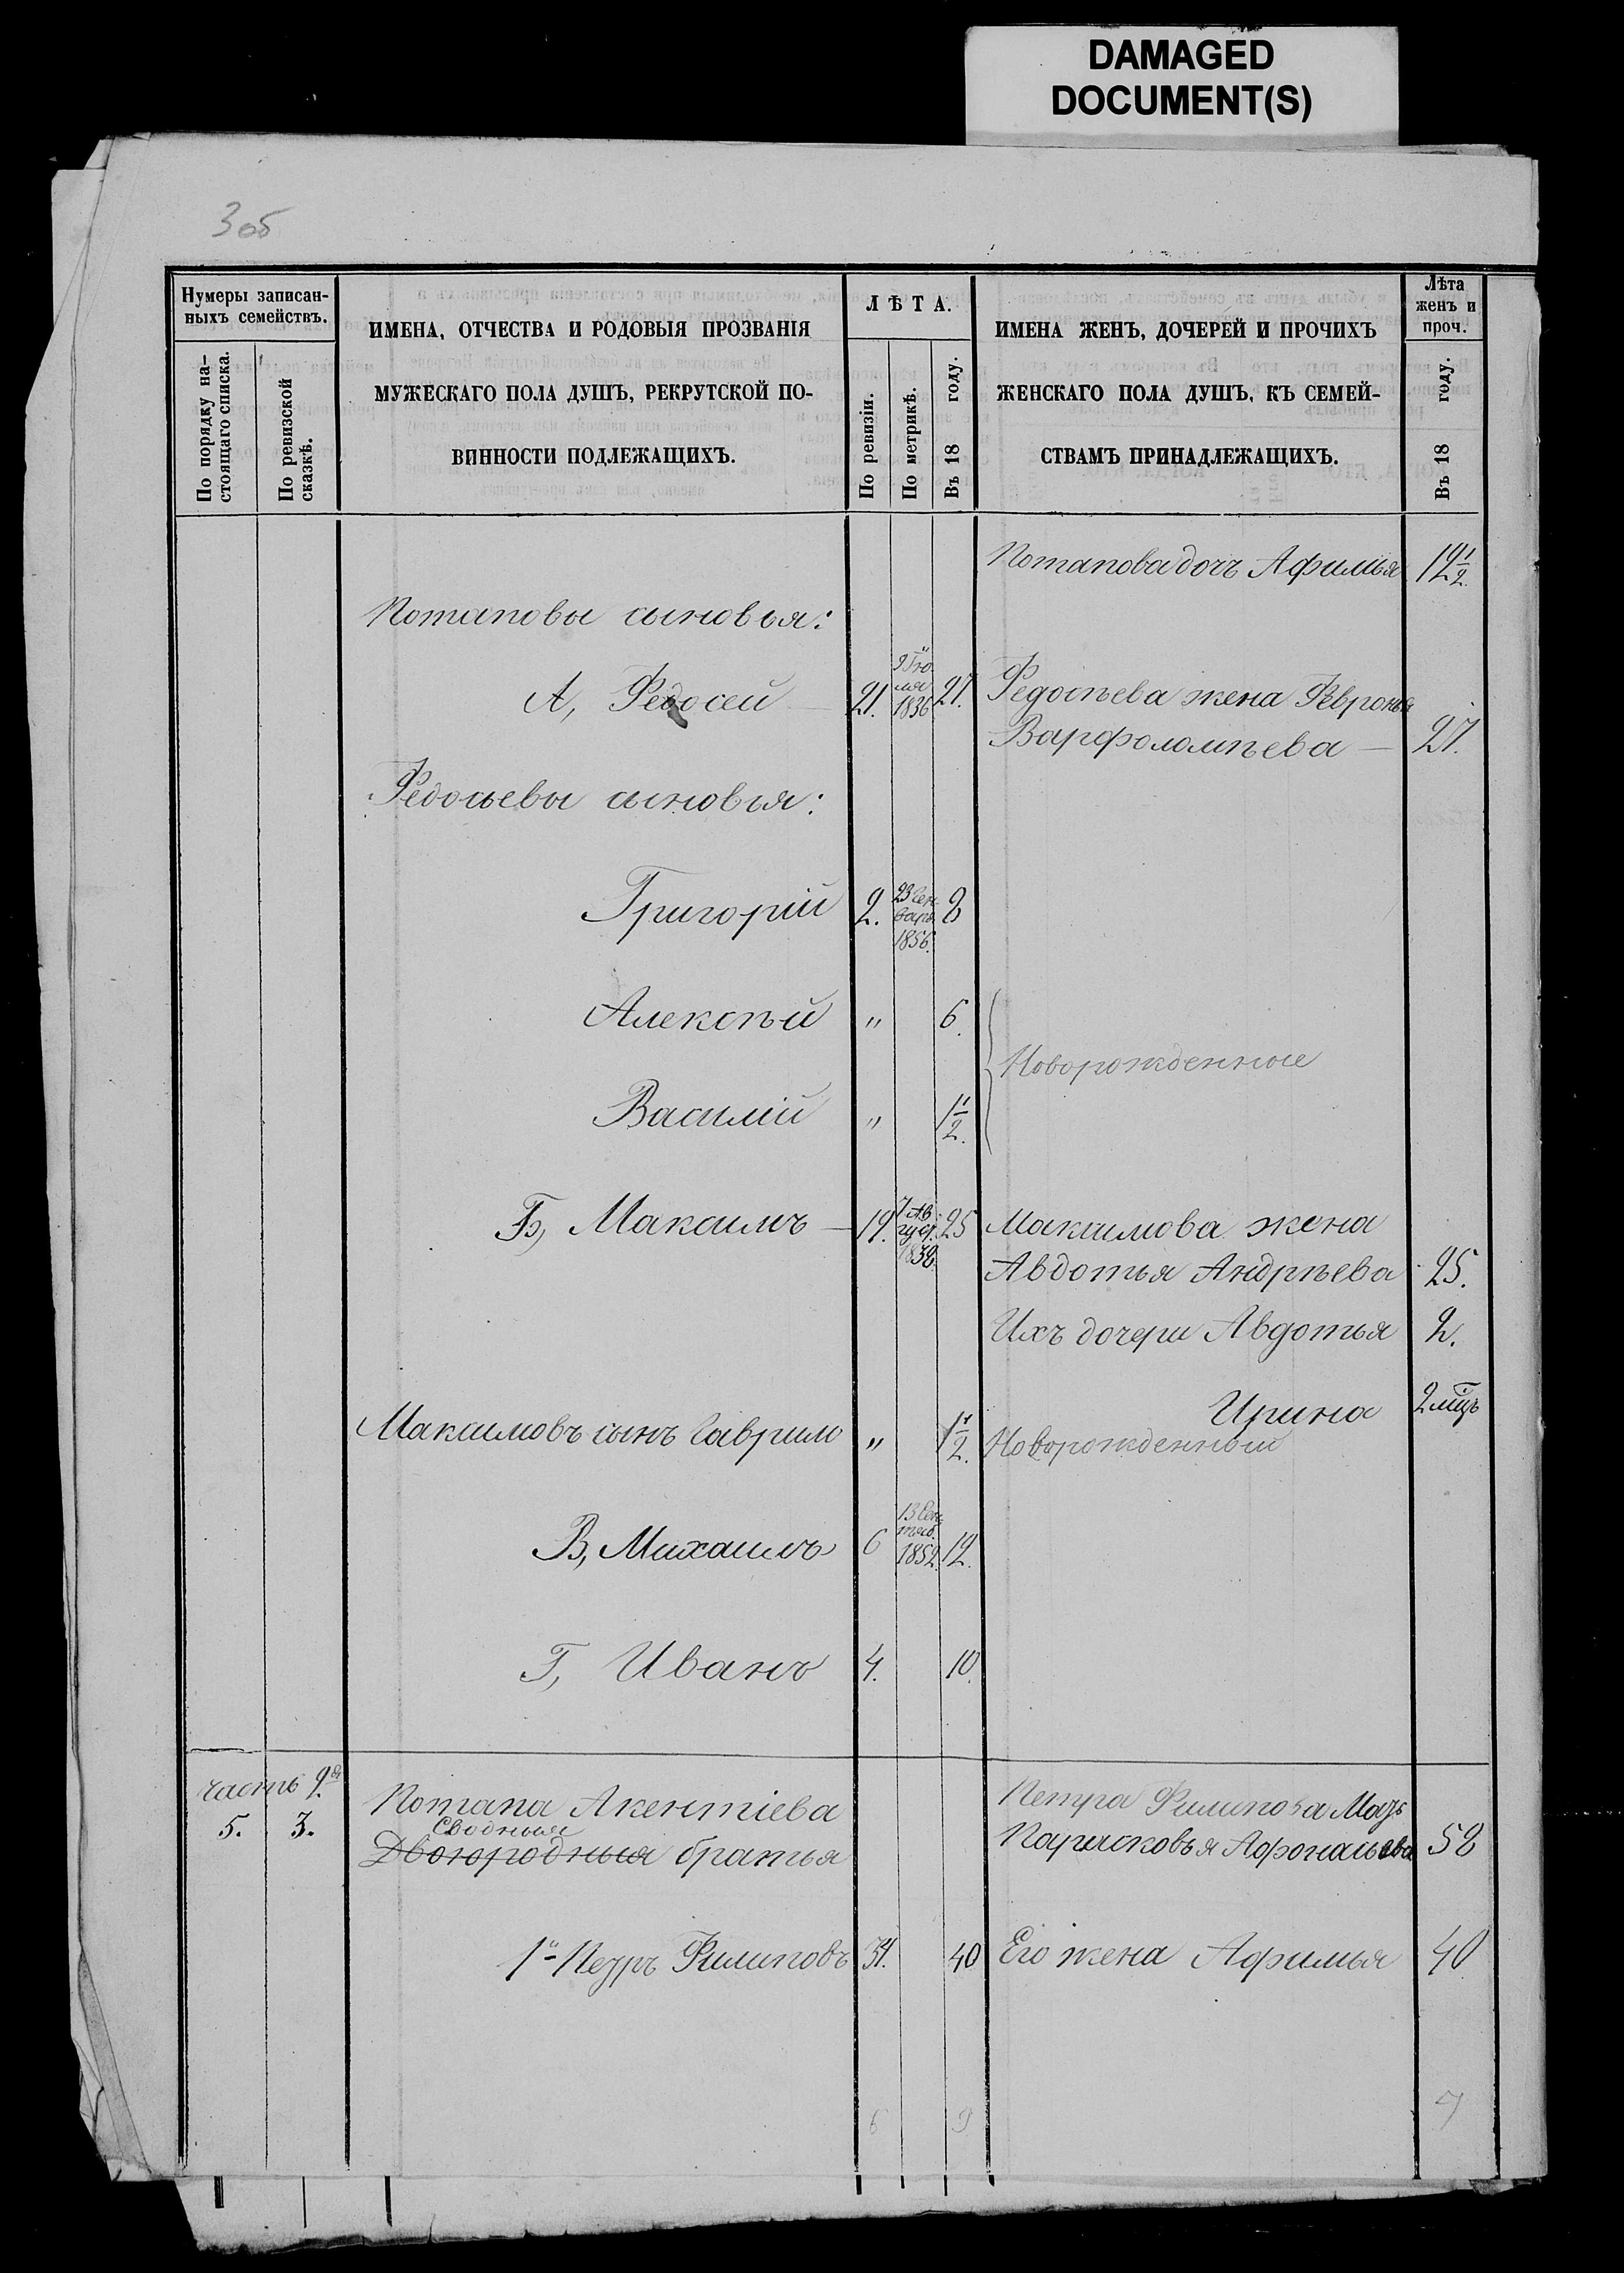 DAMAGED
DOCUMENT(S)
3 об
Нумеры записан-
ныхъ семействъ.
По порядку на-
стоящаго списка.
По ревизской
сказкѣ.
ИМЕНА, ОТЧЕСТВА И РОДОВЫЯ ПРОЗВАНІЯ
МУЖЕСКАГО ПОЛА ДУШЪ, РЕКРУТСКОЙ ПО-
ВИННОСТИ ПОДЛЕЖАЩИХЪ.
ЛѢТА.
По ревизіи.
По метрикѣ.
Въ 18 году.
ИМЕНА ЖЕНЪ, ДОЧЕРЕЙ И ПРОЧИХЪ
ЖЕНСКАГО ПОЛА ДУШЪ, КЪ СЕМЕЙ-
СТВАМЪ ПРИНАДЛЕЖАЩИХЪ.
Лѣта
женъ и
проч.
Въ 18 году.
Потапова дочь Афимья 12 1/2.
Потаповы сыновья:
А, Федосей 21. 1836 27. Федосѣева жена Февронья
Варфоломѣева — 27.
Федосьевы сыновья:
Григорій 2. 23 Ген-
варя
1856. 8
Алексѣй " 6.
Новорожденные
Василій " 1/2.
Б, Максимъ — 19. 7 Ав
густ.
1838. 25 Максимова жена
Авдотья Андрѣева 25.
Ихъ дочери Авдотья 2.
Ирина 2 мцъ
Максимовъ сынъ Гаврило " 1/2. Новорожденный
В, Михаилъ 6 13 Сен
тяб.
1852. 12.
Г, Иванъ 4. 10.
часть 2я
5. 3. Потапа Акентіева
Сводныя
Двоюродныя братья
Петра Филипова Мать
Парасковья Афонасьева 58
1й Петръ Филиповъ 34. 40 Его жена Афимья 40
6 9 7